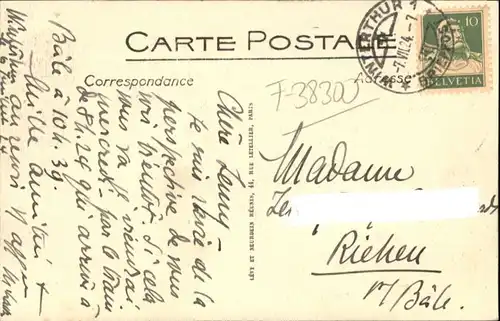 CARTE POSTALE
Correspondance
Adresse
WINTERTHUR 1
-7.VIII.24.-7
BRIEFVERSAND
10
HELVETIA
F-38300
Chère Jenny -
Je suis ravie de la
perspective de vous
voir bientôt. Si cela
vous va je viendrai
mercredi par le train
de 8h.24 qui arrive à
Bâle à 10h.39.
Mille amitiés &
au revoir
LÉVY ET NEURDEIN RÉUNIS, 44, RUE LETELLIER, PARIS
Madame
Riehen
p/ Bâle.